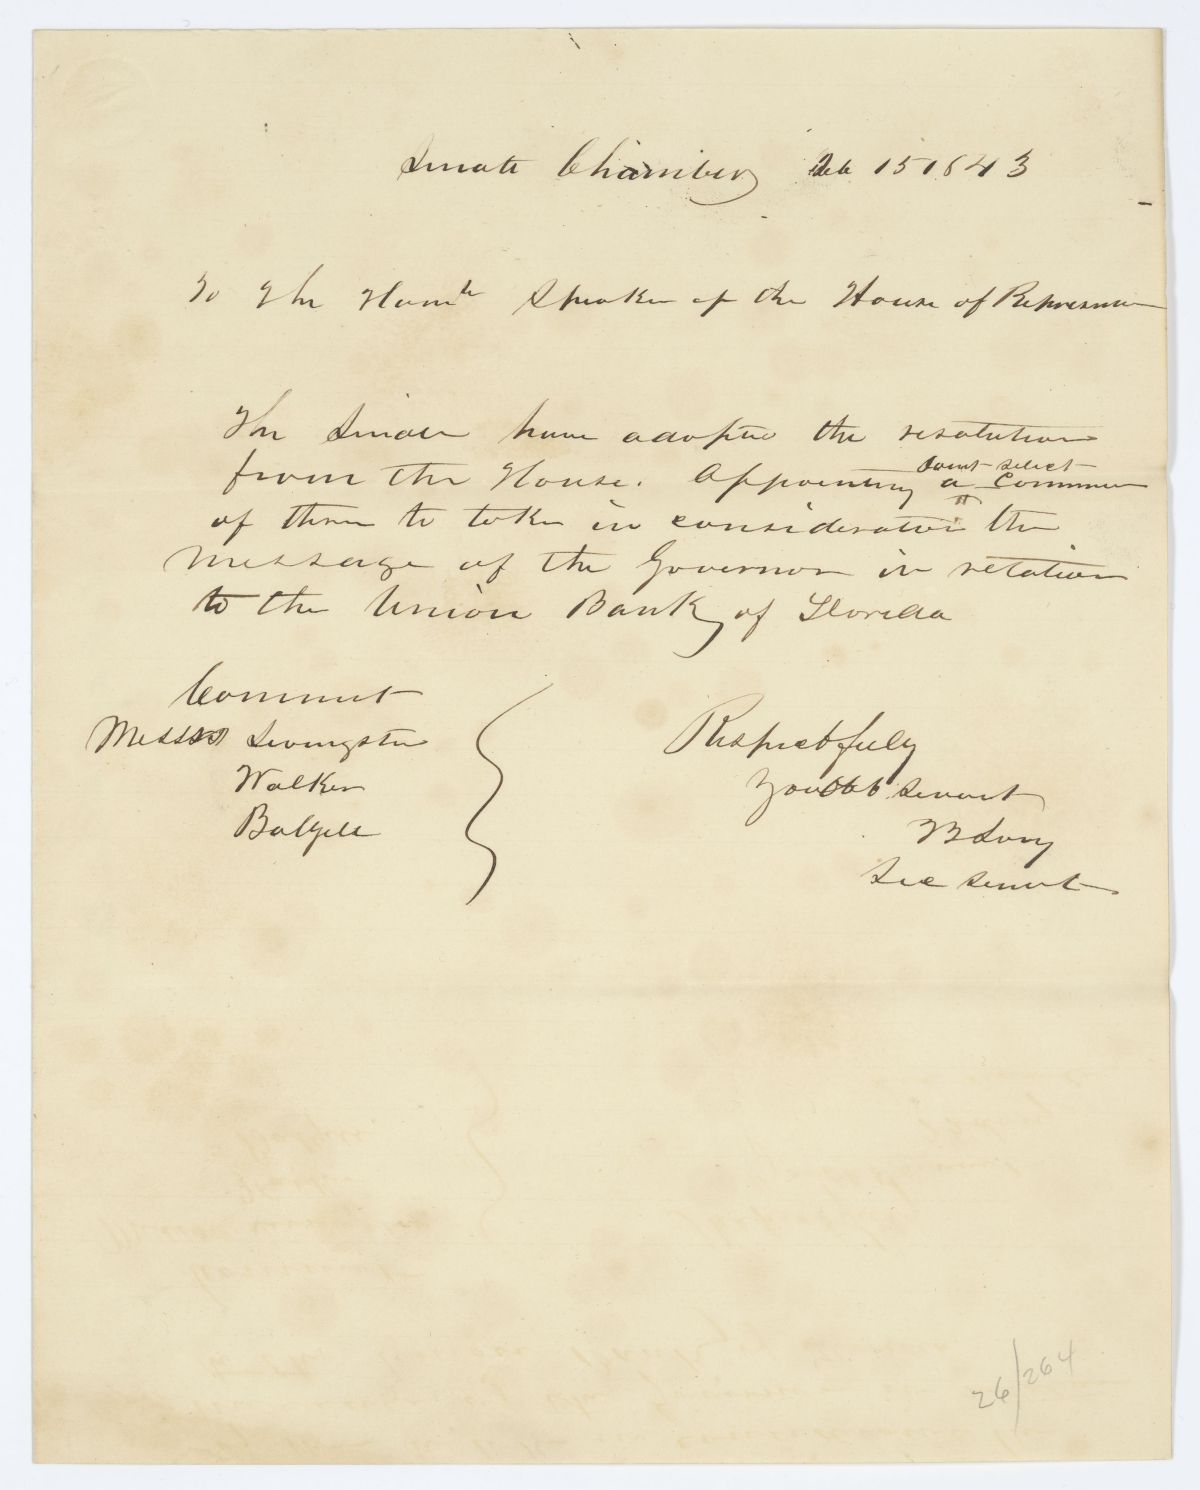 Senate Chamber Feb 15 1843
To The Honble Speaker of the House of Representa
The Senate have adopted the resolution
from the House. Appointing a joint select Committee
of three to take in consideration the
message of the Governor in relation
to the Union Bank of Florida
Committ
Messrs Livingston
Walker
Baltzell
Respectfully
Your obt Servant
Sec Senate
26/264